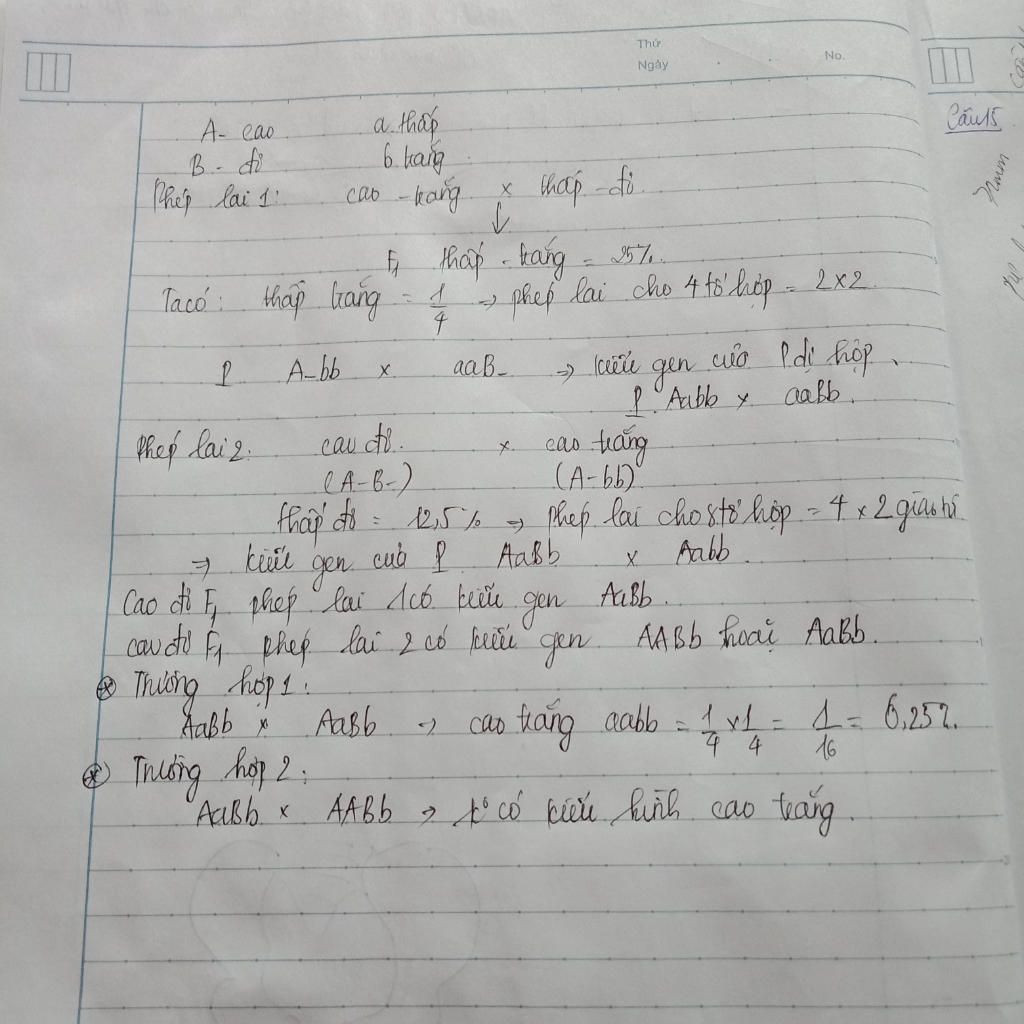 Thứ
Ngày . . No.
A- cao a. thấp
B- đỏ b. trắng
Phép lai 1: cao - trắng x thấp - đỏ
↓
F1 thấp - trắng = 25%.
Ta có: thấp trắng = 1/4 → phép lai cho 4 tổ hợp = 2x2
P A-bb x aaB- → kiểu gen của P dị hợp
P. Aabb x aaBb.
Phép lai 2: cao đỏ. x cao trắng
(A-B-) (A-bb)
thấp đỏ = 12,5% → phép lai cho 8 tổ hợp = 4 x 2 giao tử
→ kiểu gen của P AaBb x Aabb.
Cao đỏ F1 phép lai 1 có kiểu gen AaBb.
cao đỏ F1 phép lai 2 có kiểu gen AABb hoặc AaBb.
* Trường hợp 1:
AaBb x AaBb → cao trắng aabb = 1/4 x 1/4 = 1/16 = 6,25%.
* Trường hợp 2:
AaBb x AABb → ko có kiểu hình cao trắng.
Câu 15